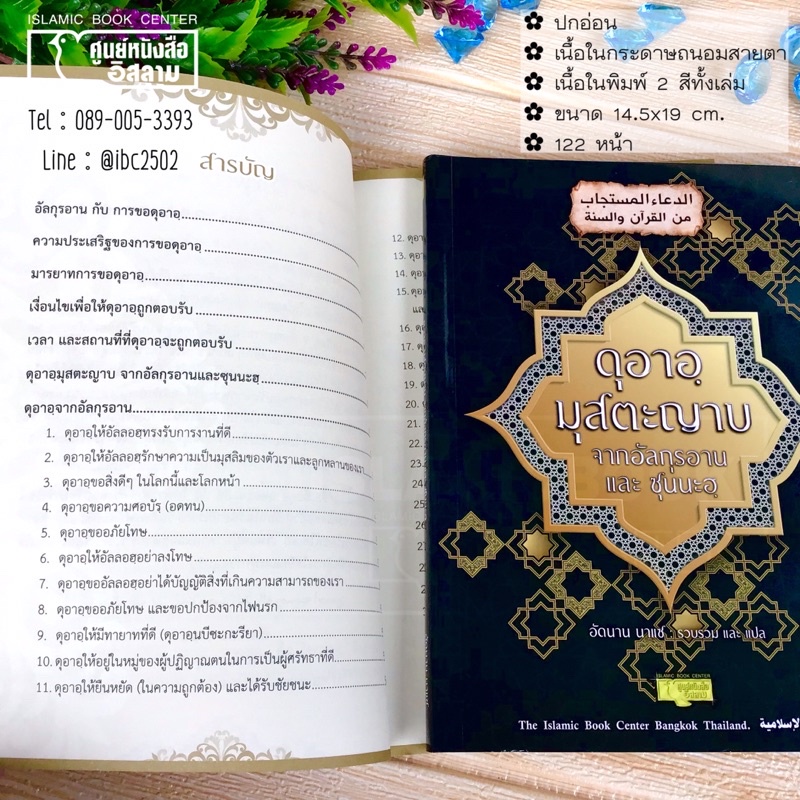 ISLAMIC BOOK CENTER
ศูนย์หนังสือ
อิสลาม
Tel : 089-005-3393
Line : @ibc2502
✽ ปกอ่อน
✽ เนื้อในกระดาษถนอมสายตา
✽ เนื้อในพิมพ์ 2 สีทั้งเล่ม
✽ ขนาด 14.5x19 cm.
✽ 122 หน้า
สารบัญ
อัลกุรอาน กับ การขอดุอาอฺ
ความประเสริฐของการขอดุอาอฺ
มารยาทการขอดุอาอฺ
เงื่อนไขเพื่อให้ดุอาอฺถูกตอบรับ
เวลา และสถานที่ที่ดุอาอฺจะถูกตอบรับ
ดุอาอฺมุสตะญาบ จากอัลกุรอานและซุนนะฮฺ
ดุอาอฺจากอัลกุรอาน
1. ดุอาอฺให้อัลลอฮฺทรงรับการงานที่ดี
2. ดุอาอฺให้อัลลอฮฺรักษาความเป็นมุสลิมของตัวเราและลูกหลานของเรา
3. ดุอาอฺขอสิ่งดีๆ ในโลกนี้และโลกหน้า
4. ดุอาอฺขอความศอบัรฺ (อดทน)
5. ดุอาอฺขออภัยโทษ
6. ดุอาอฺให้อัลลอฮฺอย่าลงโทษ
7. ดุอาอฺขออัลลอฮฺอย่าได้บัญญัติสิ่งที่เกินความสามารถของเรา
8. ดุอาอฺขออภัยโทษ และขอปกป้องจากไฟนรก
9. ดุอาอฺให้มีทายาทที่ดี (ดุอาอฺนบีซะกะรียา)
10. ดุอาอฺให้อยู่ในหมู่ของผู้ปฏิญาณตนในการเป็นผู้ศรัทธาที่ดี
11. ดุอาอฺให้ยืนหยัด (ในความถูกต้อง) และได้รับชัยชนะ
12. ดุอา
13. ดุอา
14. ดุอา
15. ดุอา
16. ดุ
17. ดุ
الدعاء المستجاب
من القرآن والسنة
ดุอาอฺ
มุสตะญาบ
จากอัลกุรอาน
และ ซุนนะฮฺ
อัดนาน นาแซ : รวบรวม และ แปล
ISLAMIC BOOK CENTER
ศูนย์หนังสือ
อิสลาม
The Islamic Book Center Bangkok Thailand. الإسلامية